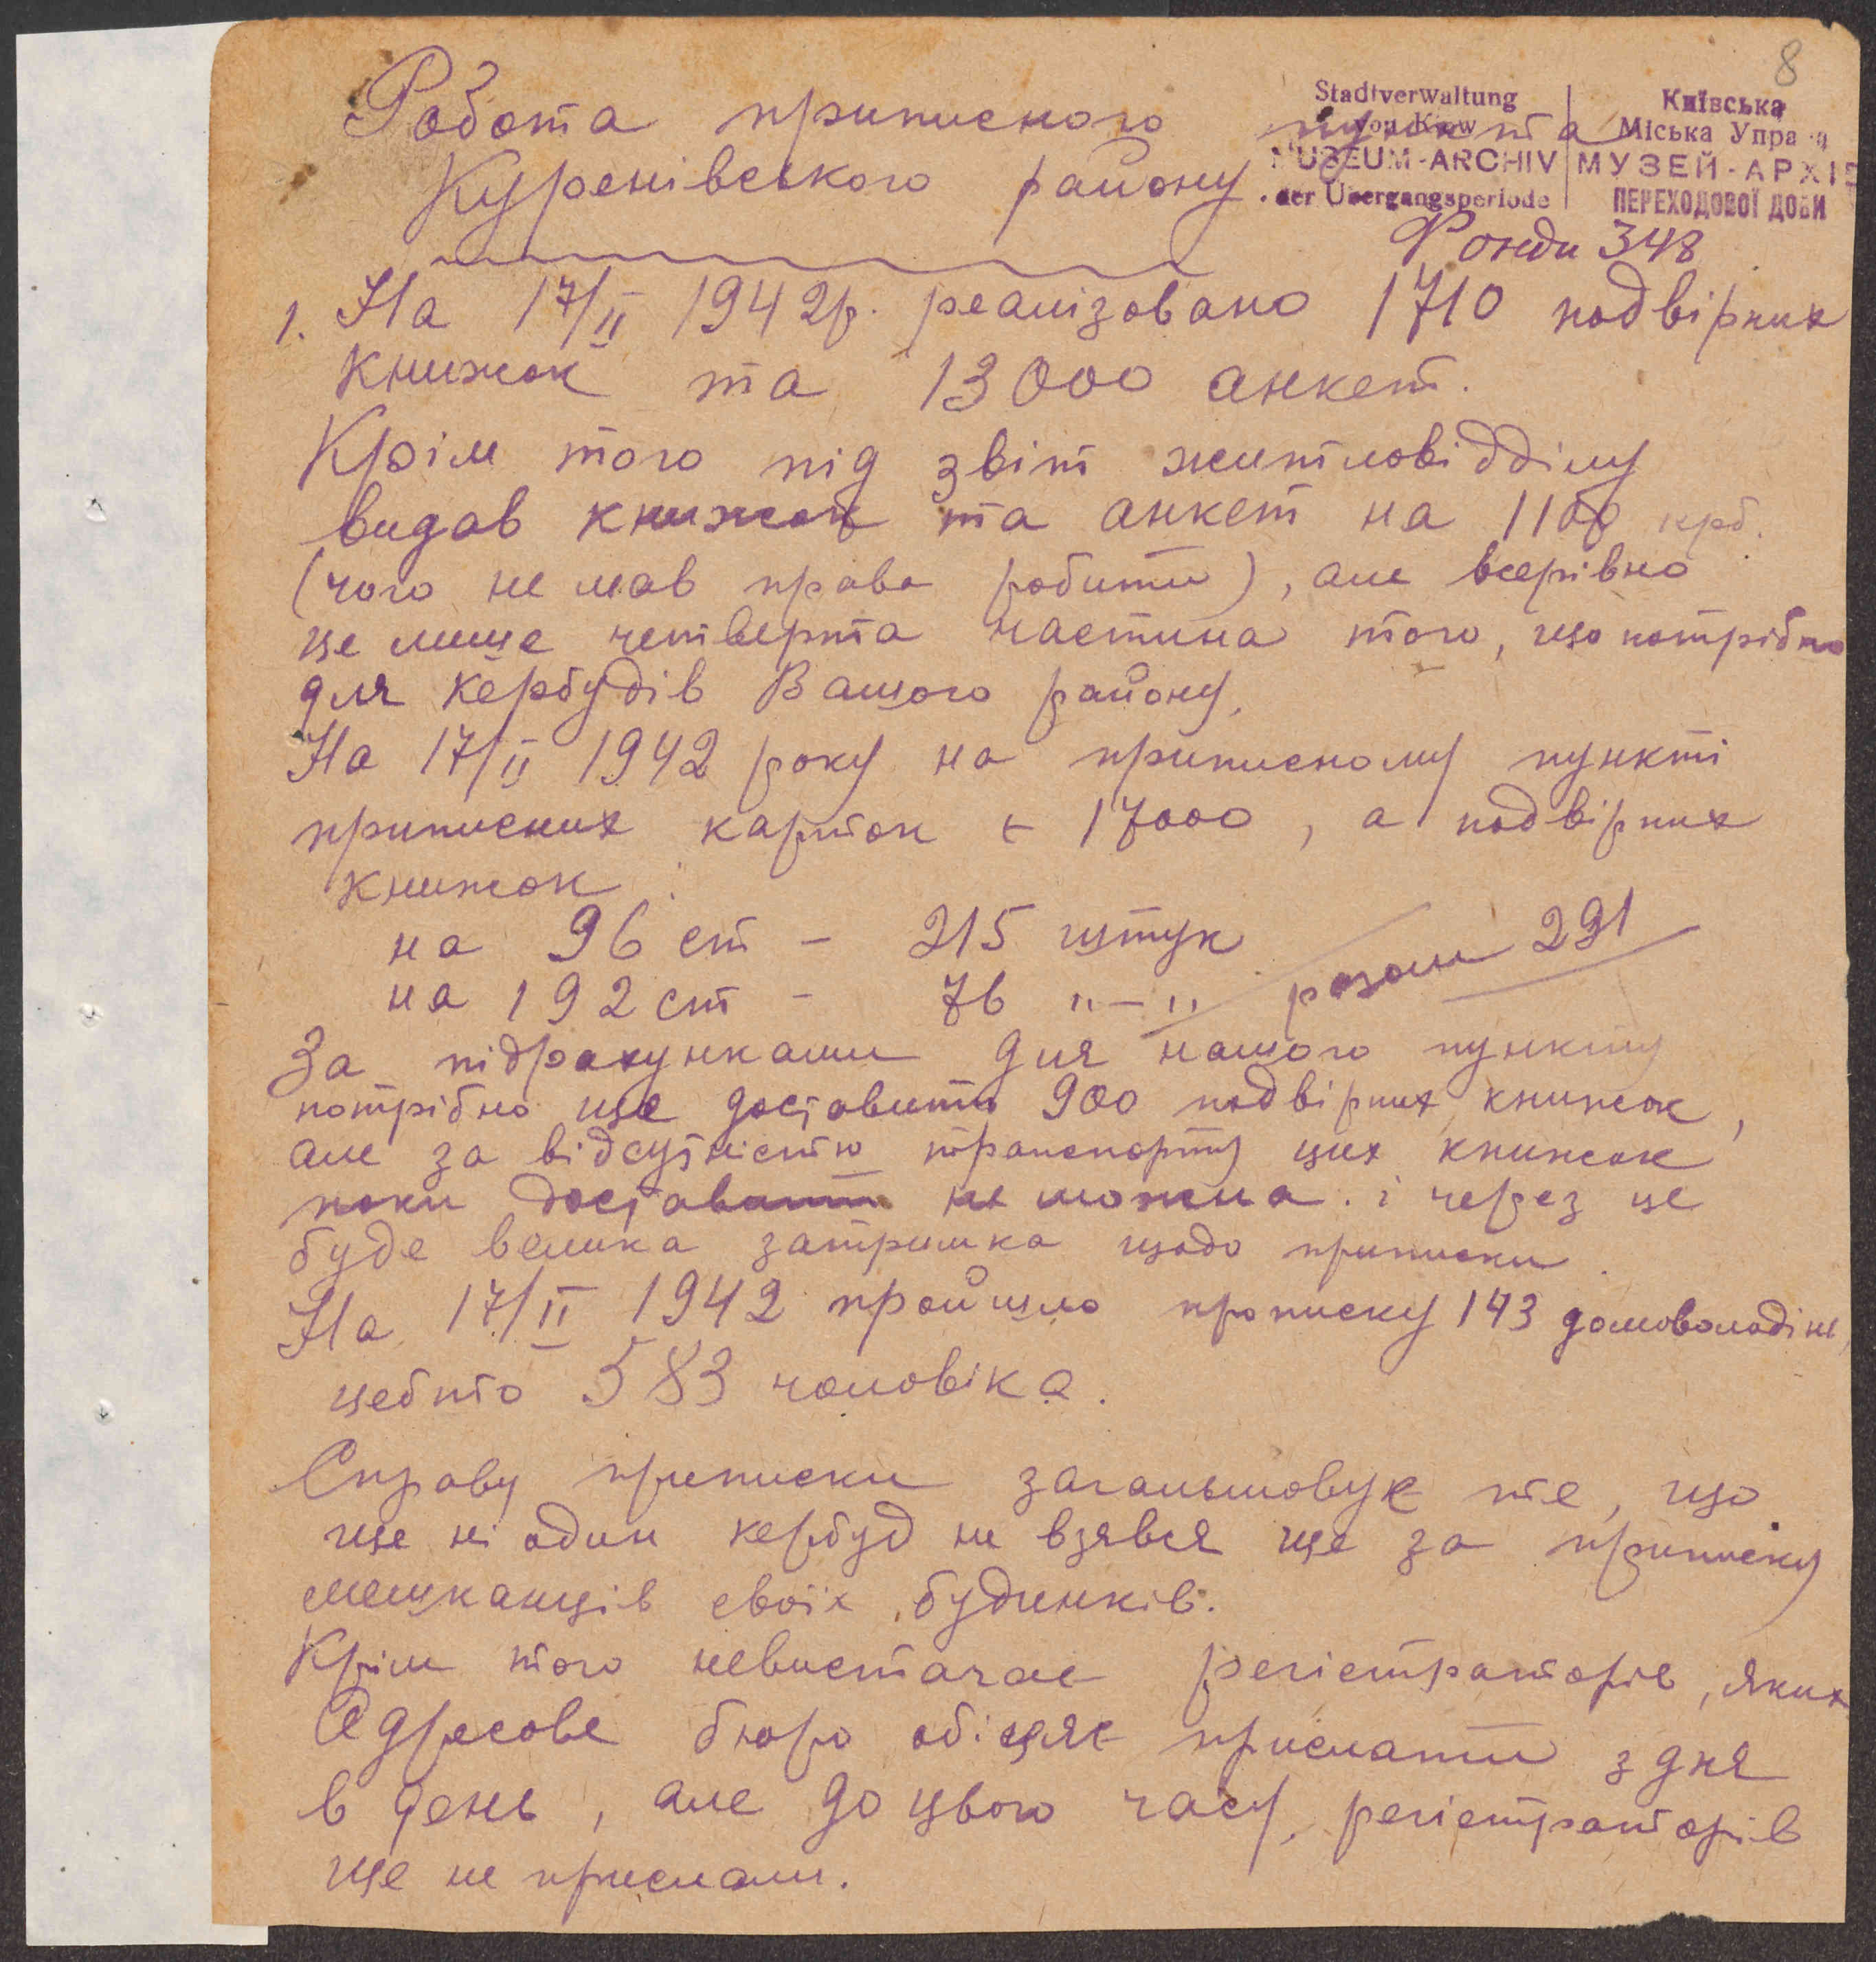 8
Stadtverwaltung
von Kiew
MUSEUM-ARCHIV
der Übergangsperiode
Київська
Міська Управа
МУЗЕЙ-АРХІВ
ПЕРЕХОДОВОЇ ДОБИ
Фонди 348
Робота приписного пункта
Куренівського району.
1. На 17/II 1942р. реалізовано 1710 подвірних
книжок та 13000 анкет.
Крім того під звіт житловідділу
видав книжок та анкет на 1100 крб.
(чого не мав права робити), але всерівно
це лише четверта частина того, що потрібно
для Кербудів Вашого району.
На 17/II 1942 року на приписному пункті
приписних карток є 17000, а подвірних
книжок:
на 96 ст - 215 штук
на 192 ст - 76 "-" разом 291
За підрахунками для нашого пункту
потрібно ще доставити 900 подвірних книжок,
але за відсутністю транспорту цих книжок
поки доставити не можна. і через це
буде велика затримка щодо приписки.
На 17/II 1942 пройшло прописку 143 домоволодінь,
цебто 583 чоловіка.
Справу приписки загальмовує те, що
ще ні один кербуд не взявся ще за приписку
мешканців своїх будинків.
Крім того невистачає регістраторів, яких
Адресове бюро обіцяє прислати з дня
в день, але до цього часу, регістраторів
ще не прислали.